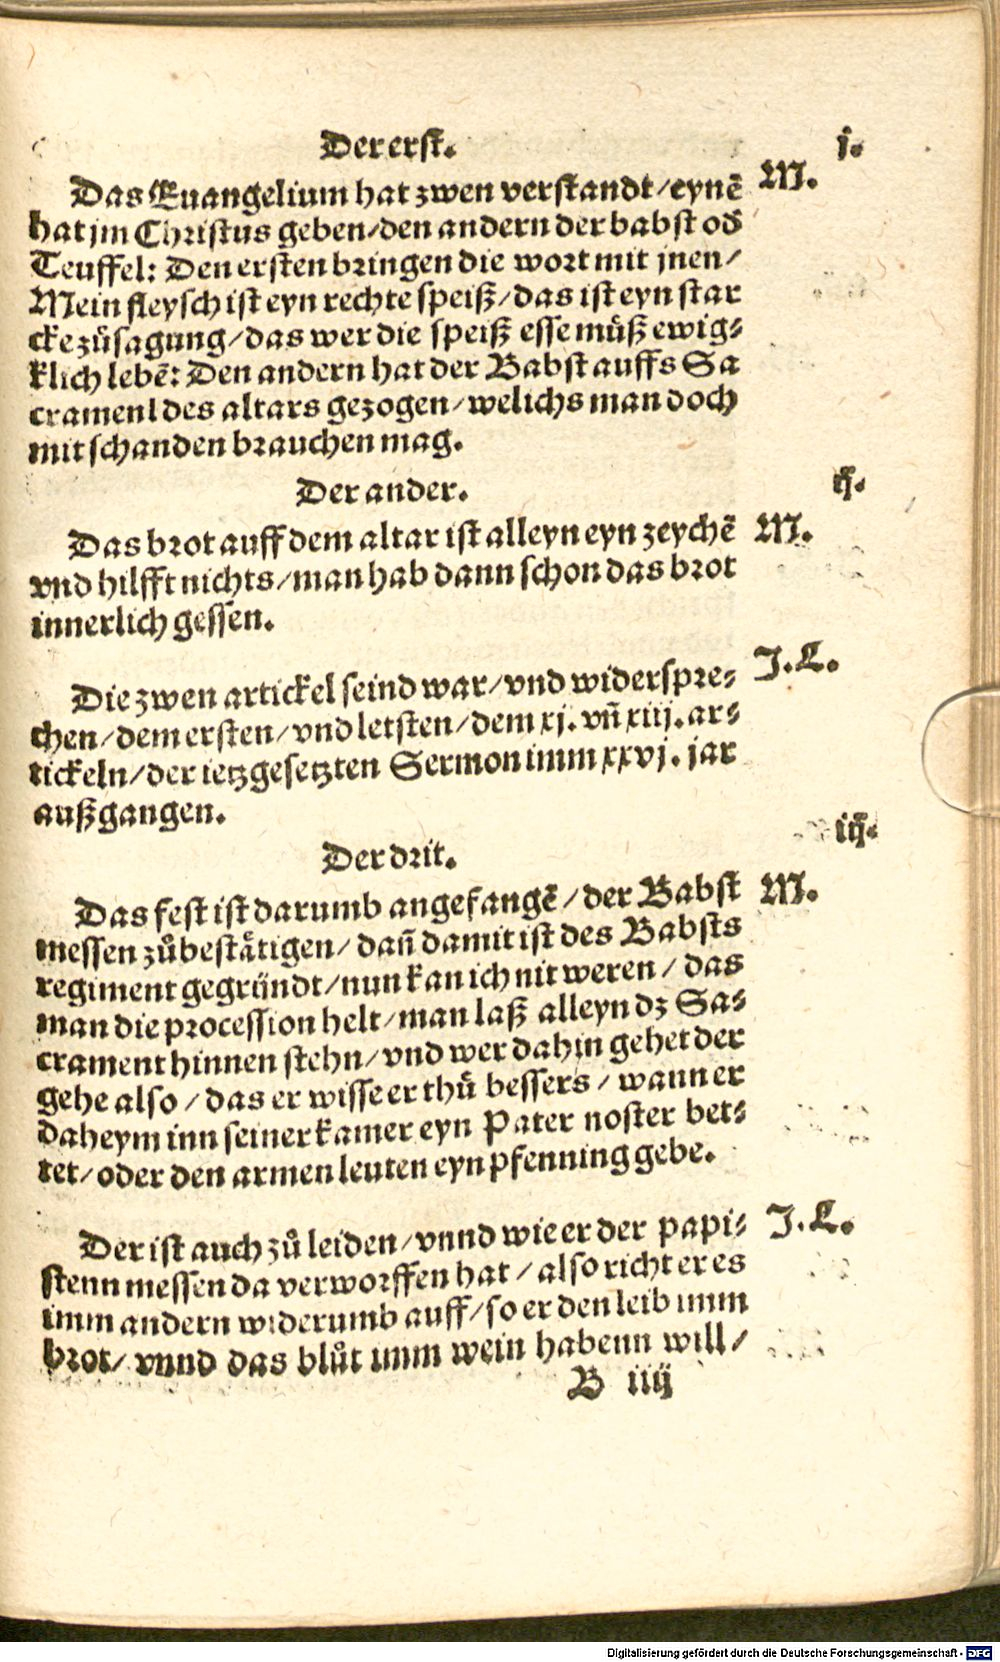 Der erst.
j.
Das Euangelium hat zwen verstandt/ eynē
M.
hat jm Christus geben/ den andern der babst od̄
Teuffel: Den ersten bringen die wort mit jnen/
Mein fleysch ist eyn rechte speiß/ das ist eyn star
cke zůsagung/ das wer die speiß esse můß ewig-
klich lebē: Den andern hat der Babst auffs Sa
cramenl des altars gezogen/ welichs man doch
mit schanden brauchen mag.
Der ander.
ij.
Das brot auff dem altar ist alleyn eyn zeychē
M.
vnd hilfft nichts/ man hab dann schon das brot
innerlich gessen.
Die zwen artickel seind war/ vnd widerspre-
J. L.
chen/ dem ersten/ vnd letsten/ dem xj. vn̄ xiij. ar-
tickeln/ der ietzgesetzten Sermon imm xxvj. jar
außgangen.
Der drit.
iij.
Das fest ist darumb angefangē/ der Babst
M.
messen zůbestätigen/ dan̄ damit ist des Babsts
regiment gegründt/ nun kan ich nit weren/ das
man die procession helt/ man laß alleyn dz Sa-
crament hinnen stehn/ vnd wer dahin gehet der
gehe also/ das er wisse er thů bessers/ wann er
daheym inn seiner kamer eyn Pater noster bet-
tet/ oder den armen leuten eyn pfenning gebe.
Der ist auch zů leiden/ vnnd wie er der papi-
J. L.
stenn messen da verworffen hat/ also richt er es
imm andern widerumb auff/ so er den leib imm
brot/ vnnd das blůt imm wein habenn will/
B iiij
Digitalisierung gefördert durch die Deutsche Forschungsgemeinschaft - DFG